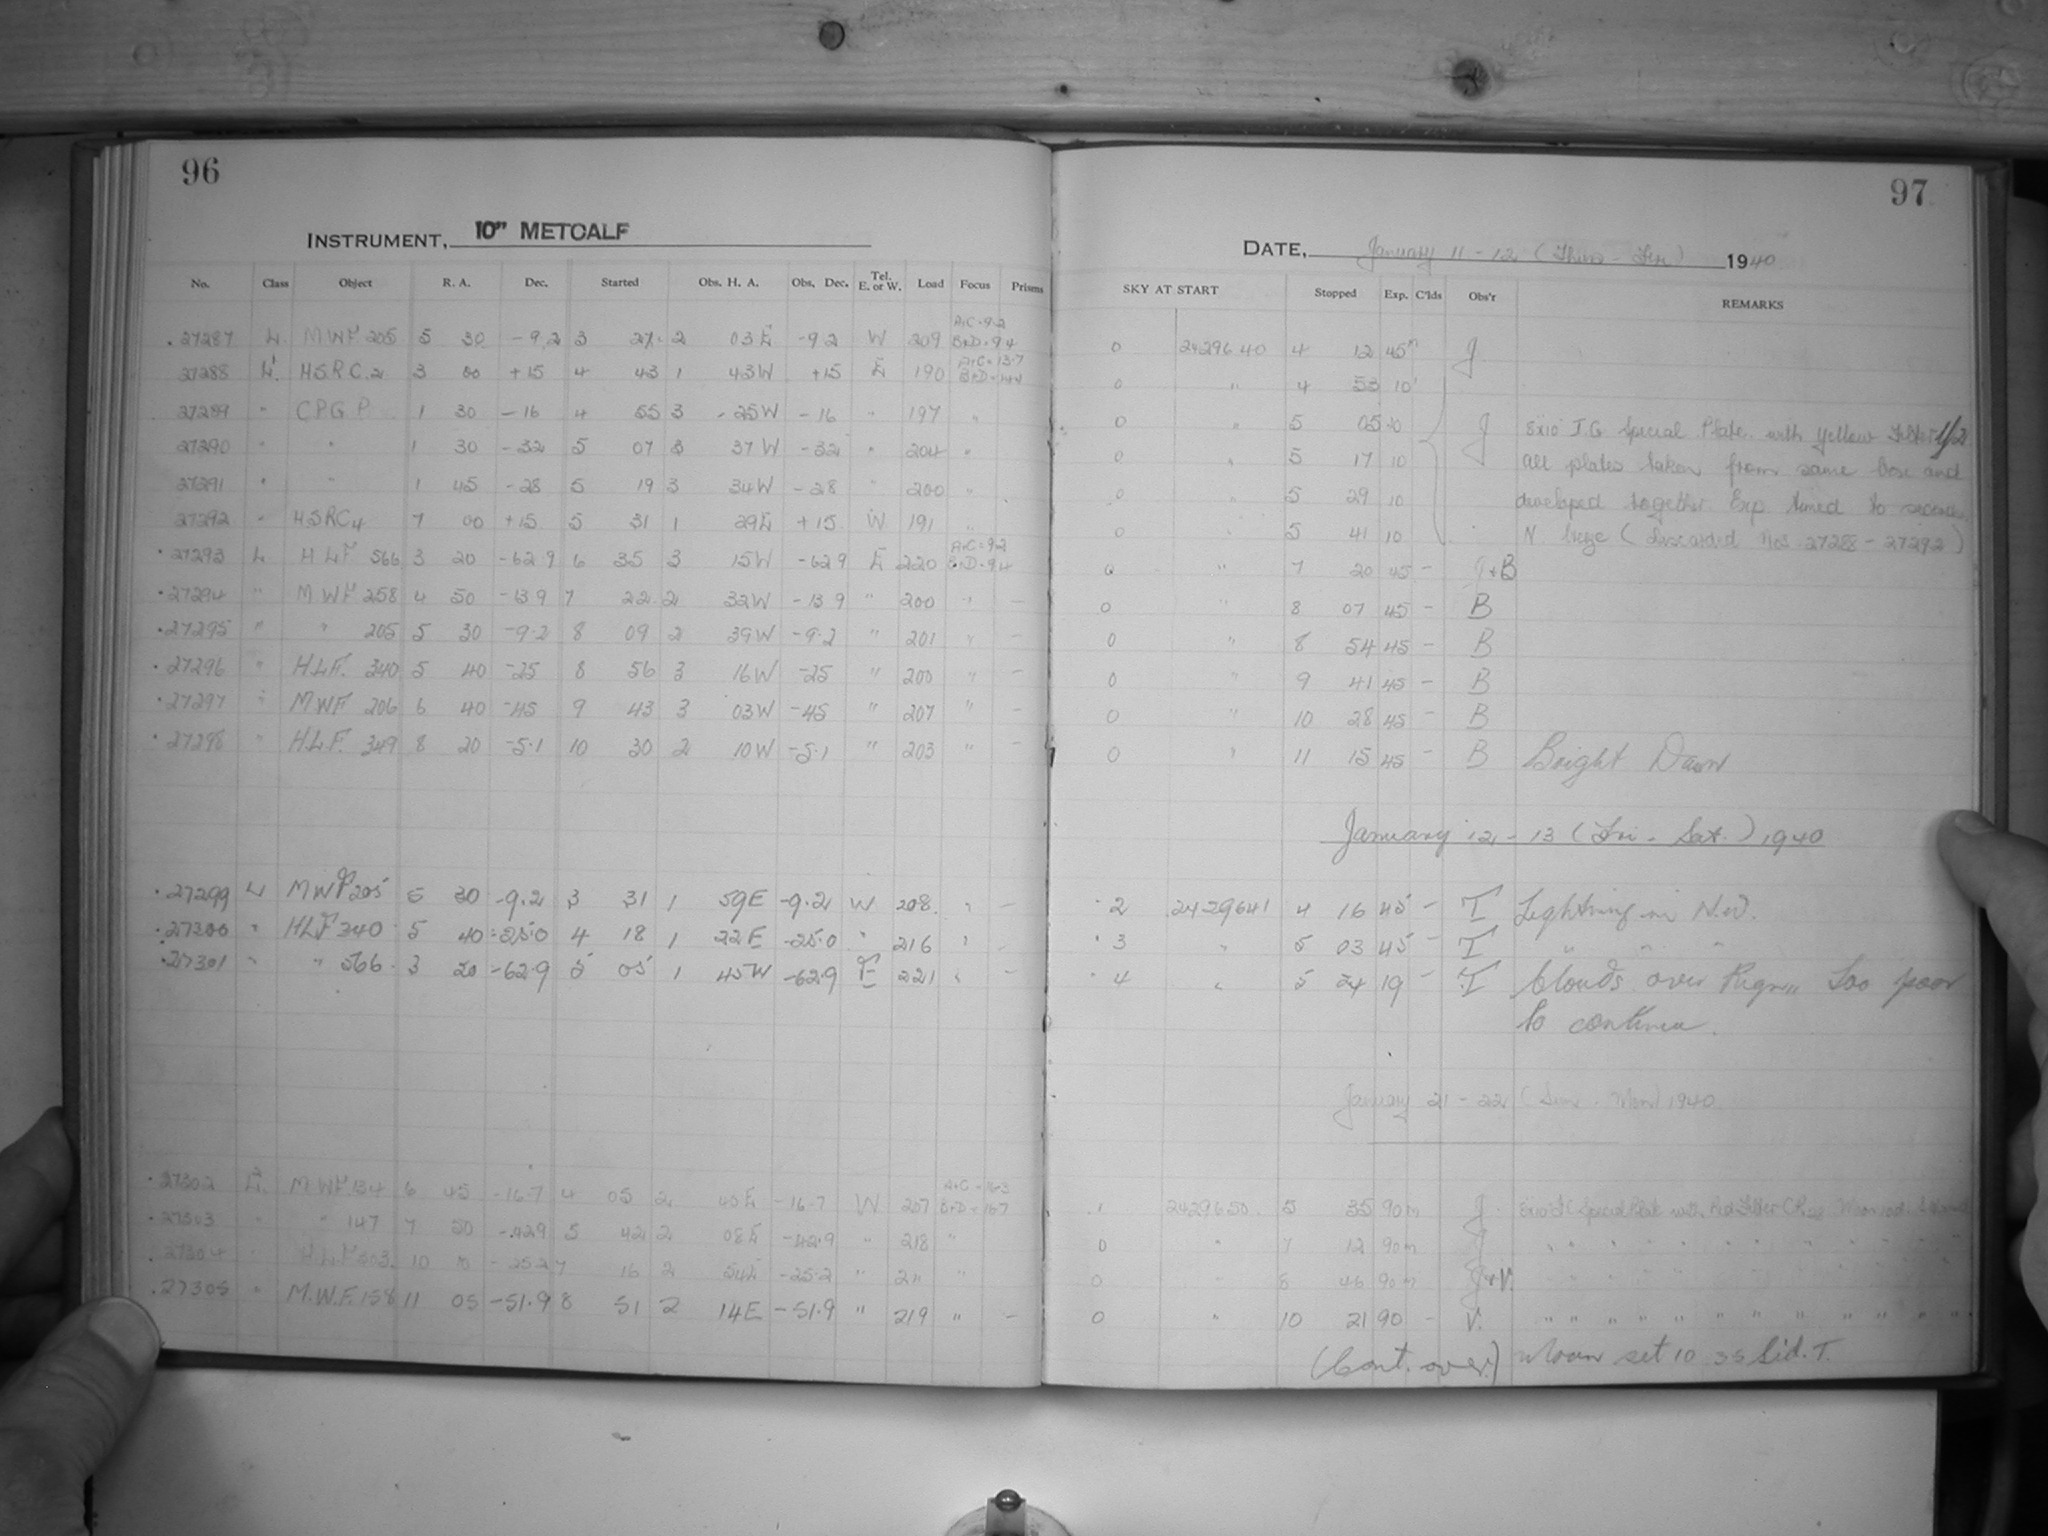 96
INSTRUMENT, 10" METCALF
No. Class Object R. A. Dec. Started Obs. H. A. Obs. Dec. Tel. E. or W. Load Focus Prisms
.27287 L. MWF 205 5 30 -9.2 3 27. 2 03 E -9 2 W 209 A+C=9.2 B+D=9.4
27288 L. HSRC2 3 00 +15 4 43 1 43W +15 E 190 A+C=13.7 B+D=14.4
27289 " CPGP 1 30 -16 4 55 3 25W -16 " 197 "
27290 " " 1 30 -32 5 07 3 37W -32 " 204 "
27291 " " 1 45 -28 5 19 3 34W -28 " 200 "
27292 " HSRC4 7 00 +15 5 31 1 29E +15 W 191 "
.27293 L HLF 566 3 20 -62 9 6 35 3 15W -62 9 E 220 A+C=9.2 B+D=9.4
.27294 " MWF 258 4 50 -13 9 7 22 2 32W -13 9 " 200 " -
.27295 " " 205 5 30 -9.2 8 09 2 39W -9.2 " 201 " -
.27296 " H.L.F. 340 5 40 -25 8 56 3 16W -25 " 200 " -
.27297 " MWF 206 6 40 -45 9 43 3 03W -45 " 207 " -
.27298 " H.L.F. 349 8 20 -5.1 10 30 2 10W -5.1 " 203 " -
.27299 L MWF 205 5 30 -9.2 3 31 1 59E -9.2 W 208. " -
.27300 " HLF 340 5 40 -25.0 4 18 1 22E -25.0 " 216 " -
.27301 " " 566 3 20 -62.9 5 05 1 45W -62.9 E 221 " -
.27302 L. MWF 134 6 45 -16.7 4 05 2 40E -16.7 W 207 A+C=16.3 B+D=16.7
.27303 " " 147 7 50 -42.9 5 42 2 08E -42.9 " 218 "
.27304 " H.L.F 303. 10 10 -25.2 7 16 2 54E -25.2 " 211 "
.27305 " M.W.F. 158 11 05 -51.9 8 51 2 14E -51.9 " 219 " -
97
DATE, January 11-12 (Thurs - Fri) 1940
SKY AT START Stopped Exp. C'lds Obs'r REMARKS
0 2429640 4 12 45m J
0 " 4 53 10'
0 " 5 05 10 J 8x10 I.G. Special Plate with Yellow Filter
0 " 5 17 10 all plates taken from same box and
0 " 5 29 10 developed together Exp timed to seconds
0 " 5 41 10 N. (Discarded Nos 27288-27292)
0 " 7 20 45 - J+B
0 " 8 07 45 - B
0 " 8 54 45 - B
0 " 9 41 45 - B
0 " 10 28 45 - B
0 " 11 15 45 - B Bright Dawn
January 12-13 (Fri - Sat.) 1940
2 2429641 4 16 45 - T Lightning in N.W.
3 " 5 03 45 - T " " "
4 " 5 24 19 - T Clouds over Region Too poor
to continue.
January 21-22 (Sun. Mon) 1940
1 2429650. 5 35 90m J. 8x10 I.G Special Plate with Red Filter
0 " 7 12 90m J " " " " " "
0 " 8 46 90m J+V. " " " " " "
0 " 10 21 90 - V. " " " " " "
(Cont. over.) Moon set 10 35 Sid. T.